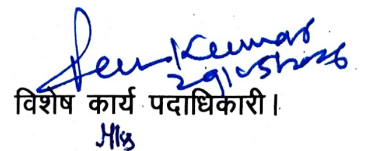 Kumar
29/05/2026
विशेष कार्य पदाधिकारी।